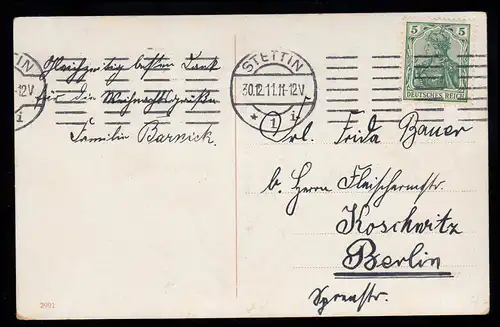 Gleichzeitig besten Dank
für die Weihnachtsgrüße
Familie Barnick
STETTIN
30.12.11.11-12V
* 1 i
TIN
-12V
i
5 5
DEUTSCHES REICH
Frl. Frida Bauer
b. Herrn Fleischermstr.
Koschwitz
Berlin
Spreestr.
3901